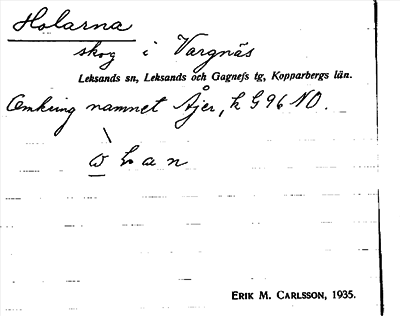 Holarna
skog i Vargnäs
Leksands sn, Leksands och Gagnefs tg, Kopparbergs län.
Omkring namnet Åjer, k G 96 NO.
ERIK M. CARLSSON, 1935.